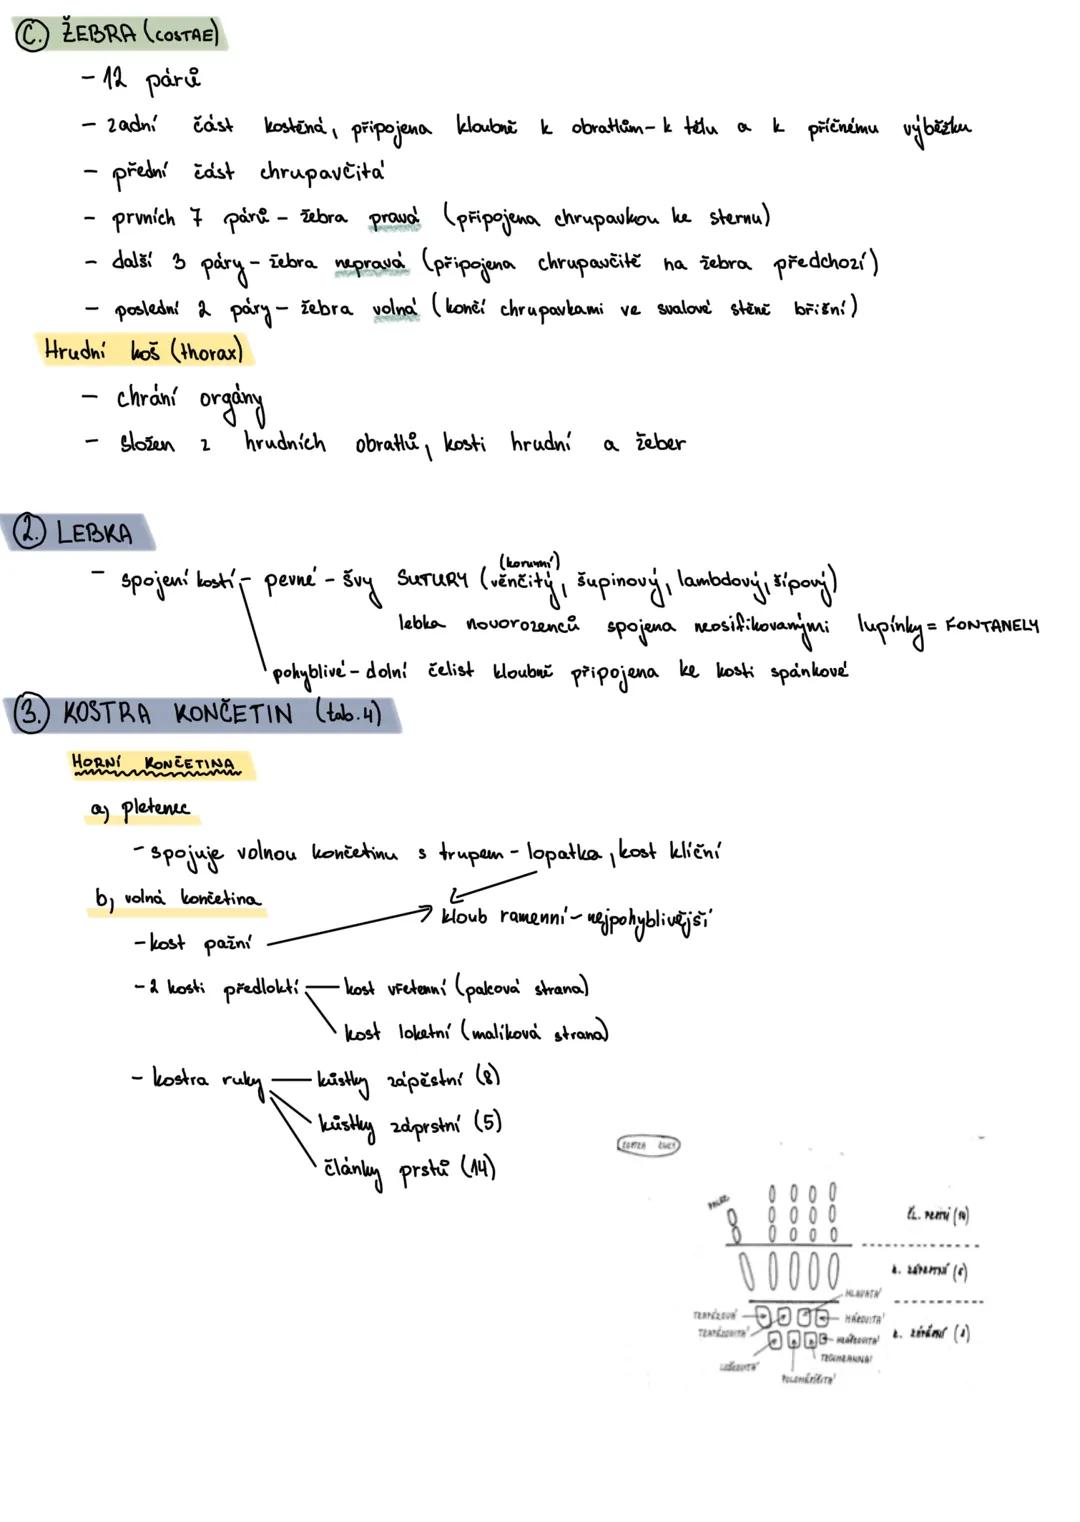 C. ŽEBRA (COSTAE)
- 12 párů
- zadní část kostěná, připojena kloubně k obratlům - k tělu a k příčnému výběžku
- přední část chrupavčitá
- prvních 7 párů - žebra pravá (připojena chrupavkou ke sternu)
- další 3 páry - žebra nepravá (připojena chrupavčitě na žebra předchozí)
- poslední 2 páry - žebra volná (končí chrupavkami ve svalové stěně břišní)
Hrudní koš (thorax)
- chrání orgány
- složen z hrudních obratlů, kosti hrudní a žeber
2. LEBKA
(korunní)
- spojení kostí - pevné - švy SUTURY (věnčitý, šupinový, lambdový, šípový)
lebka novorozenců spojena neosifikovanými lupínky = FONTANELY
pohyblivé - dolní čelist kloubně připojena ke kosti spánkové
3. KOSTRA KONČETIN (tab. 4)
HORNÍ KONČETINA
a) pletenec
- spojuje volnou končetinu s trupem - lopatka, kost klíční
b) volná končetina
kloub ramenní - nejpohyblivější
- kost pažní
- 2 kosti předloktí - kost vřetenní (palcová strana)
kost loketní (malíková strana)
- kostra ruky - kůstky zápěstní (8)
kůstky záprstní (5)
články prstů (14)
KOSTRA RUKY
PALEC
ČL. PRSTNÍ (14)
k. ZÁPRSTNÍ (5)
HLAVATÁ
TRAPÉZOVÁ
HÁKOVITÁ
TRAPÉZOVITÁ
HRÁŠKOVITÁ
k. ZÁPĚSTNÍ (8)
TROJHRANNÁ
POLOMĚSÍČITÁ